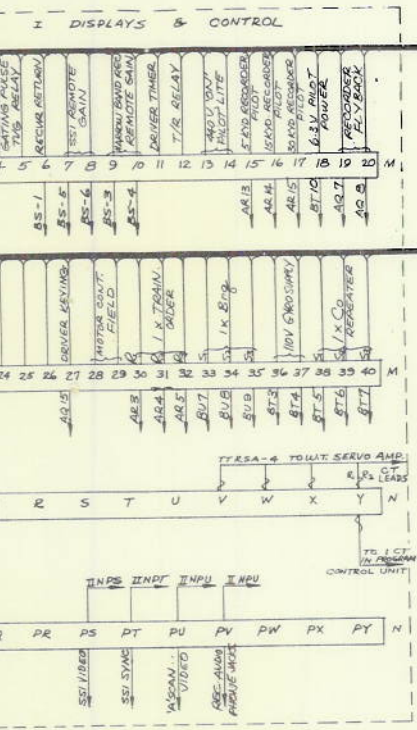 I DISPLAYS & CONTROL
GATING PULSE
TVG RELAY
RECVR RETURN
SSI REMOTE
GAIN
NARROW BAND REC
REMOTE GAIN
DRIVER TIMER
T/R RELAY
440V "ON"
PILOT LITE
5 KYD RECORDER
PILOT
15 KYD RECORDER
PILOT
30 KYD RECORDER
PILOT
6.3V PILOT
POWER
RECORDER
FLYBACK
5 6 7 8 9 10 11 12 13 14 15 16 17 18 19 20 M
BS-1
BS-5
BS-6
BS-3
BS-4
AR13
AR14
AR15
BT10
AQ7
AQ8
DRIVER KEYING
MOTOR CONT.
FIELD
1 X TRAIN
ORDER
1X Brg
110V GYRO SUPPLY
1 X Co
REPEATER
24 25 26 27 28 29 30 31 32 33 34 35 36 37 38 39 40 M
AQ15
AR3
AR4
AR5
BU7
BU8
BU9
BT3
BT4
BT5
BT6
BT7
TTRSA-4 TO W.T. SERVO AMP.
R1 R2 CT
LEADS
R S T U V W X Y N
TO 1 CT
IN PROGRAM
CONTROL UNIT
II NPS II NPT II NPU II NPU
PR PS PT PU PV PW PX PY N
SSI VIDEO
SSI SYNC
"A" SCAN
VIDEO
REC. AUDIO
PHONE JACKS